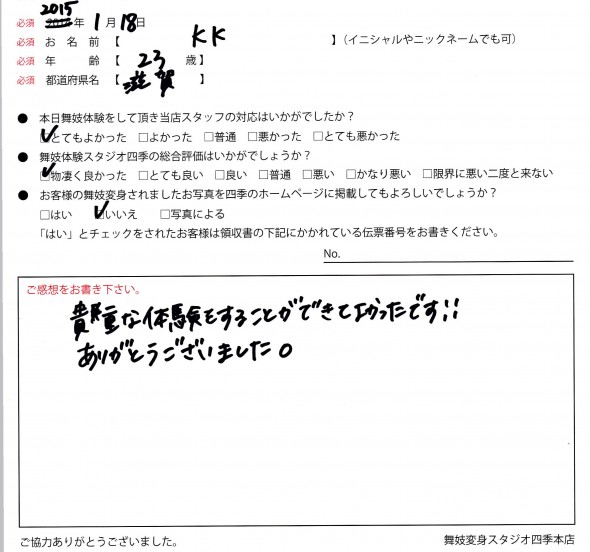 2015
必須 2014年 1月18日
必須 お名前【 KK 】(イニシャルやニックネームでも可)
必須 年齢【 23 歳】
必須 都道府県名【 滋賀 】
● 本日舞妓体験をして頂き当店スタッフの対応はいかがでしたか？
☑とてもよかった □よかった □普通 □悪かった □とても悪かった
● 舞妓体験スタジオ四季の総合評価はいかがでしょうか？
☑物凄く良かった □とても良い □良い □普通 □悪い □かなり悪い □限界に悪い二度と来ない
● お客様の舞妓変身されましたお写真を四季のホームページに掲載してもよろしいでしょうか？
□はい ☑いいえ □写真による
「はい」とチェックをされたお客様は領収書の下記にかかれている伝票番号をお書きください。
No.
ご感想をお書き下さい。
貴重な体験をすることができてよかったです!!
ありがとうございました。
ご協力ありがとうございました。 舞妓変身スタジオ四季本店